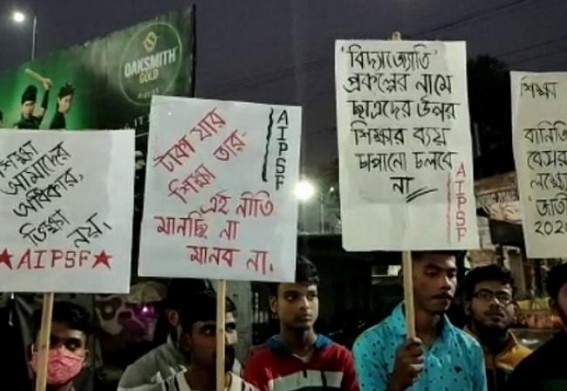 OAKSMITH
GOLD
শিক্ষা
আমাদের
অধিকার,
ভিক্ষা
নয়।
★AIPSF★
টাকা যার
শিক্ষা তার-
এই নীতি
মানছি না
মানব না।
AIPSF
'বিদ্যাজ্যোতি'
প্রকল্পের নামে
ছাত্রদের উপর
শিক্ষার ব্যয়
চাপানো চলবে
না
AIPSF
শিক্ষা
লক্ষ্যে
'জাতী
২০২০